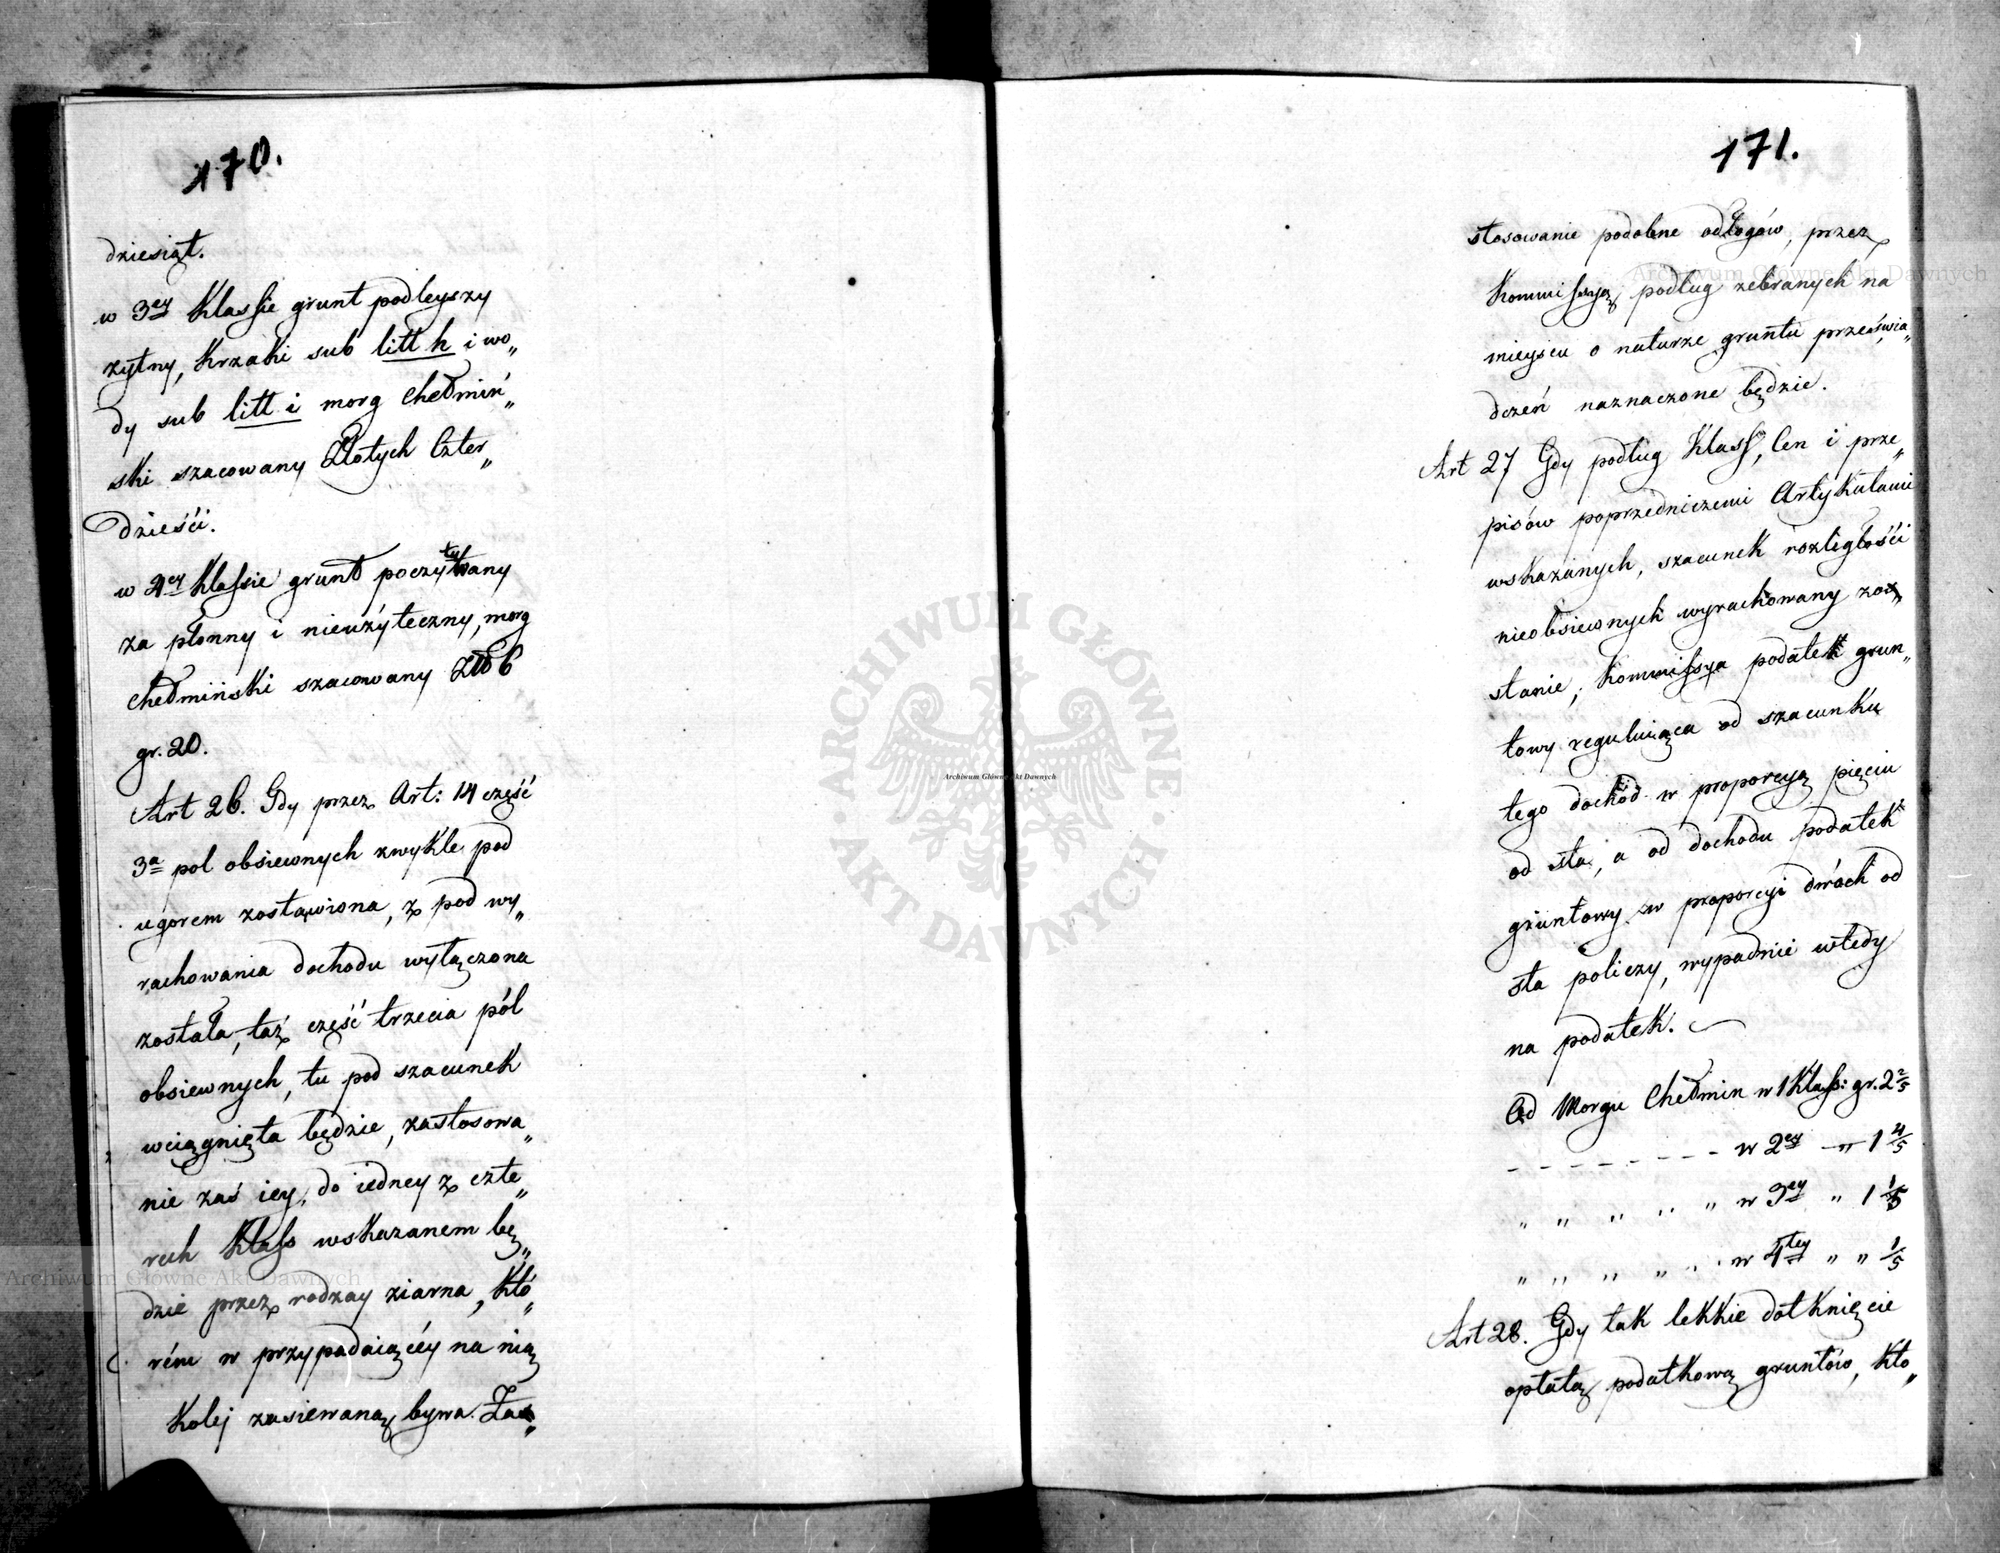 170.
dziesiąt.
w 3ey Klassie grunt podleyszy
żytny, Krzaki sub litt h i wo„
dy sub litt i morg Chełmiń„
ski szacowany Złotych Czter„
dzieści.
w 4ey Klassie grunt poczytywany
za płonny i nieużyteczny, morg
Chełmiński szacowany Zł 6
gr. 20.
Art 26. Gdy przez Art: 14 część
3a pol obsiewnych zwykle pod
ugorem zostawiona, z pod wy„
rachowania dochodu wyłączona
została, taż część trzecia pól
obsiewnych, tu pod szacunek
wciągnięta będzie, zastosowa„
nie zaś iey, do iedney z czte„
rech Klass wskazanem bę„
dzie przez rodzay ziarna, Któ„
rém w przypadaiącéy na nią
Kolej zasiewaną bywa. Zas„
171.
stosowanie podobne odłogów, przez
Kommissyą podług zebranych na
mieyscu o naturze gruntu prześwia„
dczeń naznaczone będzie.
Art 27 Gdy podług Klass, Cen i prze„
pisów poprzedniczemi Artykułami
wskazanych, szacunek rozległości
nieobsiewnych wyrachowany zos„
stanie, Kommissya podatek grun„
towy reguluiąca od szacunku
tego dochód w proporcyą pięciu
od sta, a od dochodu podatek
gruntowy w proporcyi dwóch od
sta policzy, wypadnie wtedy
na podatek.
Od Morgu Chełmin w 1 Klass: gr. 2 2/5
- - - - - - - - - w 2ey — „ 1 4/5
„ „ „ „ „ w 3ey „ 1 1/5
„ „ „ „ „ w 4tey „ „ 1/5
Art 28. Gdy tak lekkie dotknięcie
opłatą podatkową gruntów, Kto„
Archiwum Główne Akt Dawnych
Archiwum Główne Akt Dawnych
ARCHIWUM GŁÓWNE
· AKT DAWNYCH ·
Archiwum Główne Akt Dawnych